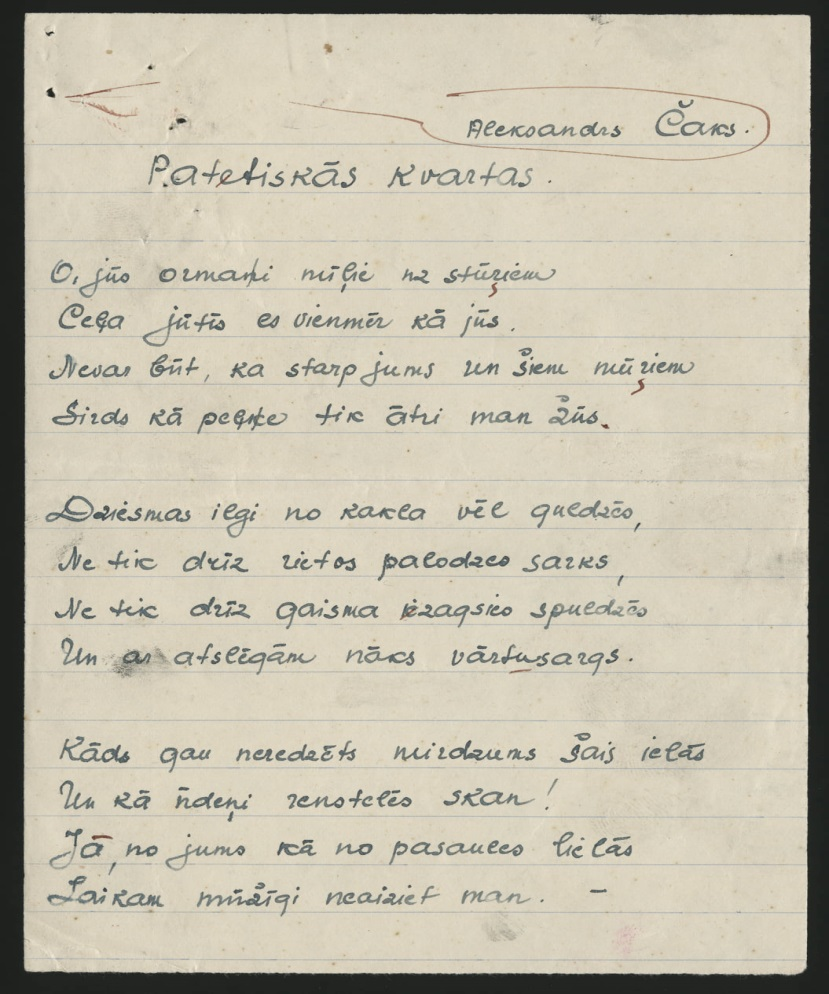 Aleksandrs Čaks.
Patetiskās kvartas.
O, jūs ormaņi mīļie uz stūŗiem
Ceļa jūtīs es vienmēr kā jūs.
Nevar būt, ka starp jums un šiem mūŗiem
Sirds kā peļķe tik ātri man žūs.
Dziesmas ilgi no kakla vēl guldzēs,
Ne tik drīz rietos palodzes sarks,
Ne tik drīz gaisma izdzisīs spuldzēs
Un ar atslēgām nāks vārtusargs.
Kāds gan neredzēts mirdzums šais ielās
Un kā ūdeņi renstelēs skan!
Jā, no jums kā no pasaules lielās
Laikam mūžīgi neaiziet man. –